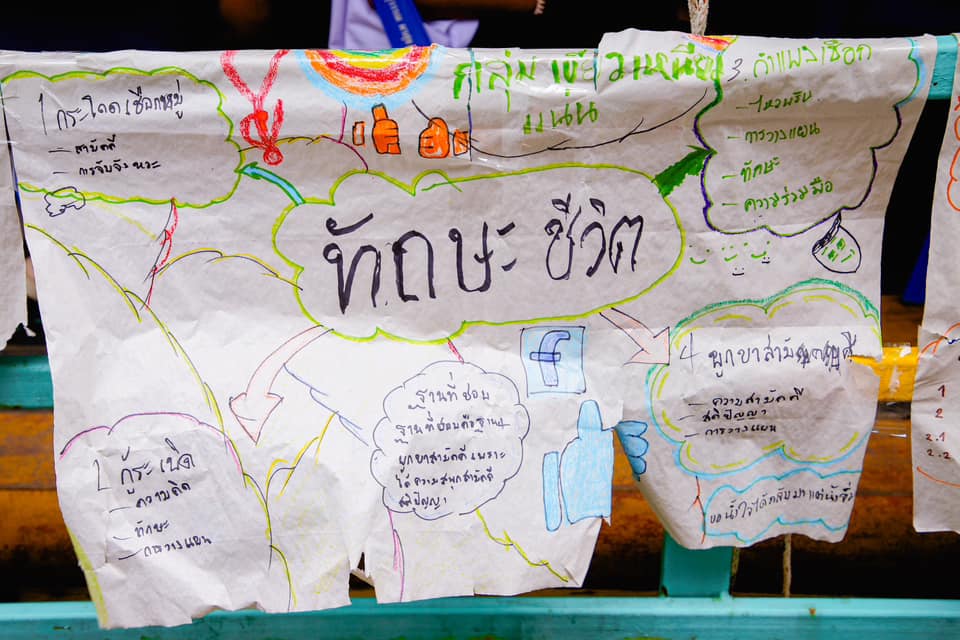 กลุ่ม เขี้ยวเหนียว
แน่น
1 กระโดดเชือกหมู่
- สามัคคี
- การจับจังหวะ
3. กำแพงเชือก
- ไหวพริบ
- การวางแผน
- ทักษะ
- ความร่วมมือ
ทักษะ ชีวิต
f
4 ผูกขาสามัคคี
- ความสามัคคี
- สติปัญญา
- การวางแผน
ฐานที่ชอบ
ฐานที่ชอบคือฐาน4
ผูกขาสามัคคี เพราะ
ได้ ความสนุกสามัคคี
สติปัญญา
2 กู้ระเบิด
- ความคิด
- ทักษะ
- การวางแผน
1
2
2.1
2.2